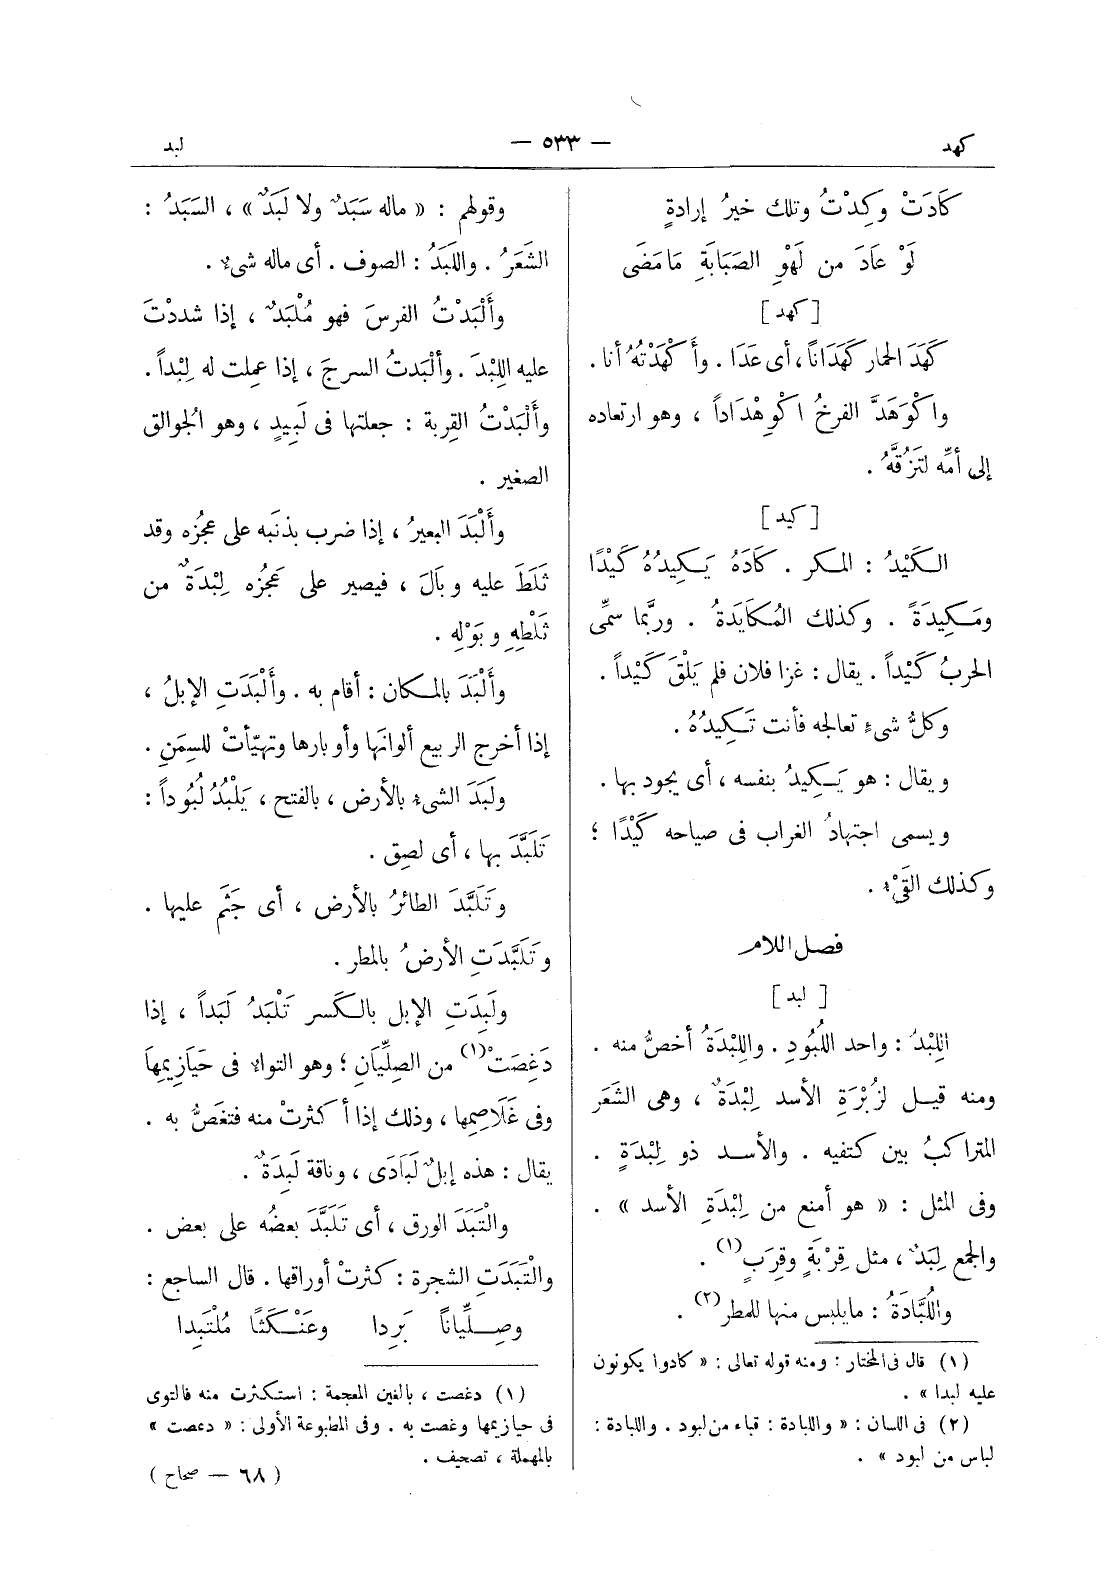 كهد
— ٥٣٣ —
لبد
كَادَتْ وَكِدْتُ وتلك خيرُ إرادةٍ
لَوْ عَادَ من لَهْوِ الصَبَابَةِ مَا مَضَى
[ كهد ]
كَهَدَ الحمار كَهَدَاناً ، أى عَدَا . وأَكْهَدْتُهُ أنا .
واكْوَهَدَّ الفرخُ اكْوِهْدَاداً ، وهو ارتعاده
إلى أمِّه لتَزُقَّهُ .
[ كيد ]
الكَيْدُ : المكر . كَادَهُ يَكِيدُهُ كَيْدًا
ومَكِيدَةً . وكذلك المُكَايَدَةُ . وربَّما سمِّى
الحربُ كَيْداً . يقال : غزا فلان فلم يَلْقَ كَيْداً .
وكلُّ شىءٍ تعالجه فأنت تَكِيدُهُ .
ويقال : هو يَكِيدُ بنفسه ، أى يجود بها .
ويسمى اجتهادُ الغراب فى صياحه كَيْدًا ؛
وكذلك القَىْءِ .
فصل اللام
[ لبد ]
اللِبْدُ : واحد اللُبُودِ . واللِبْدَةُ أخصُّ منه .
ومنه قيل لزُبْرَةِ الأسد لِبْدَةٌ ، وهى الشَعَر
المتراكبُ بين كتفيه . والأسد ذو لِبْدَةٍ .
وفى المثل : « هو أمنع من لِبْدَةِ الأسد » .
والجمع لِبَدٌ ، مثل قِرْبَةٍ وقِرَبٍ (١) .
واللُبَّادَةُ : مايلبس منها للمطر (٢) .
(١) قال فى المختار : ومنه قوله تعالى : « كادوا يكونون
عليه لبدا » .
(٢) فى اللسان : « واللبادة : قباء من لبود . واللبادة :
لباس من لبود » .
وقولهم : « ماله سَبَدٌ ولا لَبَدٌ » ، السَبَدُ :
الشَعَرُ . واللَبَدُ : الصوف . أى ماله شىء .
وأَلْبَدْتُ الفرسَ فهو مُلْبَدٌ ، إذا شددْتَ
عليه اللِبْدَ . وألْبَدتُ السرجَ ، إذا عمِلت له لِبْداً .
وأَلْبَدْتُ القِربة : جعلتها فى لَبِيدٍ ، وهو الجُوالق
الصغير .
وأَلْبَدَ البعيرُ ، إذا ضرب بذنَبه على عجُزه وقد
ثَلَطَ عليه وبَالَ ، فيصير على عَجُزه لِبْدَةٌ من
ثَلْطِهِ وبَوْلِه .
وأَلْبَدَ بالمكان : أقام به . وأَلْبَدَتِ الإبلُ ،
إذا أخرج الربيع ألوانَها وأوبارها وتهيّأتْ للسِمَنِ .
ولَبَدَ الشىء بالأرض ، بالفتح ، يَلْبُدُ لُبُوداً :
تَلَبَّدَ بها ، أى لصِق .
وتَلَبَّدَ الطائرُ بالأرض ، أى جَثَم عليها .
وتَلَبَّدَتِ الأرضُ بالمطر .
ولَبِدَتِ الإبل بالكَسر تَلْبَدُ لَبَداً ، إذا
دَغِصَتْ (١) من الصِلِّيَانِ ؛ وهو التواء فى حَيَازِيمِهَا
وفى غَلَاصِمِها ، وذلك إذا أكثرتْ منه فتغَصُّ به .
يقال : هذه إبلٌ لَبَادَى ، وناقة لَبِدَةٌ .
والْتَبَدَ الورق ، أى تَلَبَّدَ بعضُه على بعض .
والْتَبَدَتِ الشجرة : كثرتْ أوراقها . قال الساجع :
وصِلِّيَاناً بَرِدا وعَنْكَثًا مُلْتَبِدا
(١) دغصت ، بالغين المعجمة : استكثرت منه فالتوى
فى حيازيمها وغصت به . وفى المطبوعة الأولى : « دعصت »
بالمهملة ، تصحيف .
( ٦٨ — صحاح )